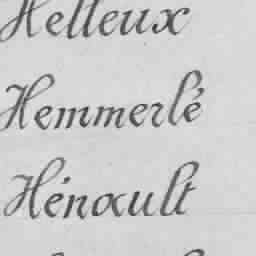 Helleux
Hemmerlé
Hénault